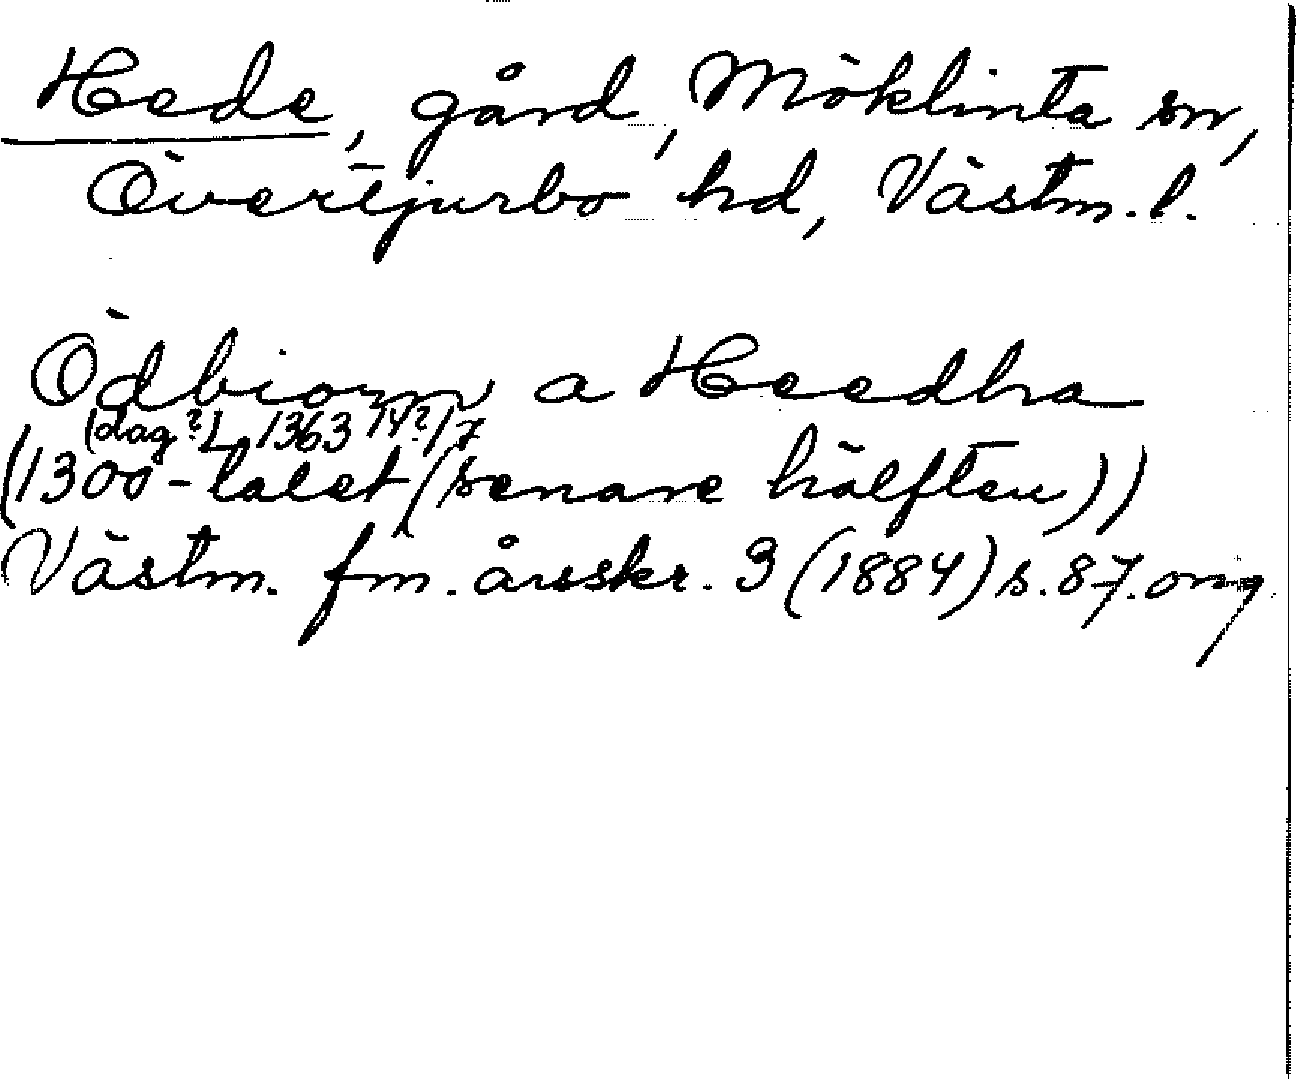 Hede, gård, Möklinta sn,
Övertjurbo hd, Västm. l.
Ödbiorn a Heedha
(dag?) 1363 14?/7
(1300-talet (senare hälften))
Västm. fm. årsskr. 3 (1884) s. 87. omg